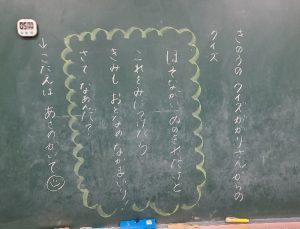 きのうの クイズがかりさんからの
クイズ
ほそながい ぬのきれだけど
これをみにつけたら
きみも おとなの なかまいり!
さて、なあんだ?
→こたえは あさのかいで